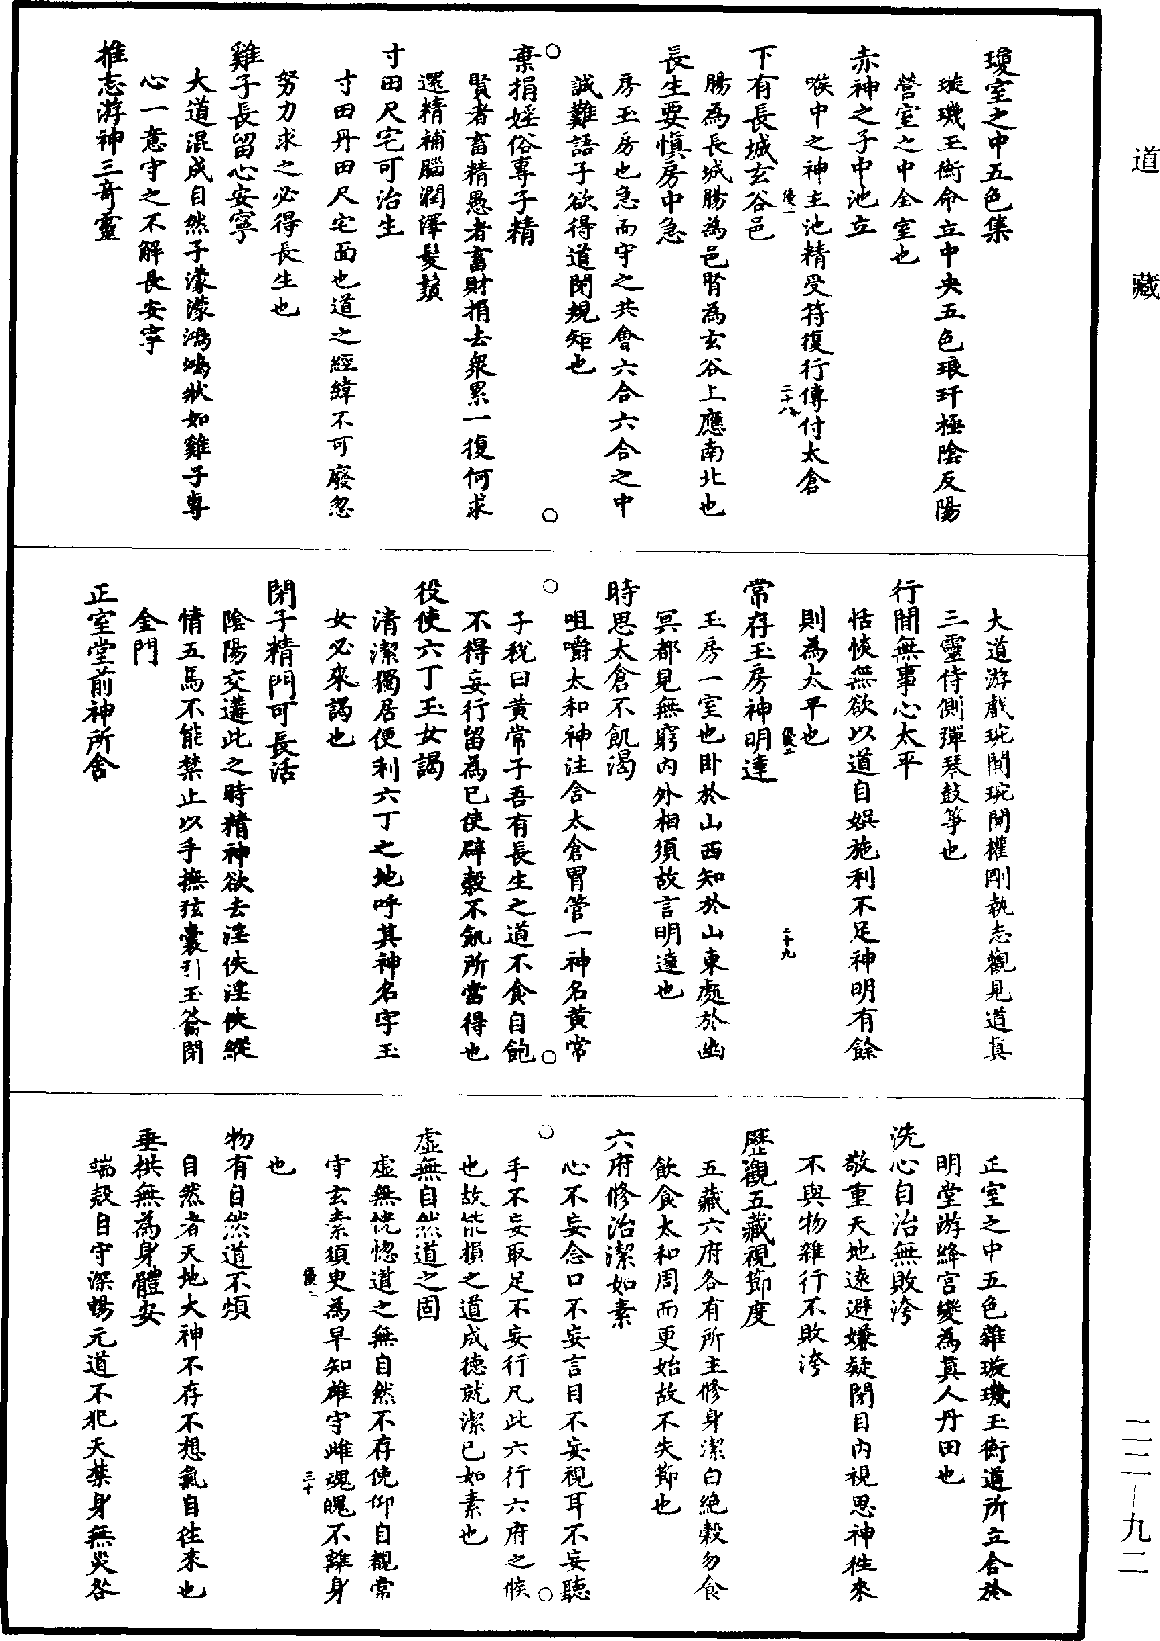 道藏
瓊室之中五色集
璇璣玉衡命立中央五色琅玕極陰反陽
營室之中金室也
赤神之子中池立
喉中之神主池精受符復行傳付太倉
優一
二十八
下有長城玄谷邑
腸為長城腸為邑腎為玄谷上應南北也
長生要慎房中急
房玉房也急而守之共會六合六合之中
誠難語子欲得道閉規矩也
棄捐婬俗專子精
賢者畜精愚者畜財捐去衆累一復何求
還精補腦潤澤髮鬚
寸田尺宅可治生
寸田丹田尺宅面也道之經緯不可廢忽
努力求之必得長生也
雞子長留心安寧
大道混成自然子濛濛鴻鴻狀如雞子專
心一意守之不解長安寧
推志游神三奇靈
大道游戲琬閬琬閬權剛執志觀見道真
三靈侍側彈琴鼓箏也
行間無事心太平
恬惔無欲以道自娛施利不足神明有餘
則為太平也
優二
二十九
常存玉房神明達
玉房一室也卧於山西知於山東處於幽
冥都見無窮內外相須故言明達也
時思太倉不飢渴
咀嚼太和神注含太倉胃管一神名黃常
子祝曰黃常子吾有長生之道不食自飽
不得妄行留為已使辟穀不飢所當得也
役使六丁玉女謁
清潔獨居便利六丁之地呼其神名字玉
女必來謁也
閉子精門可長活
陰陽交遘此之時精神欲去淫佚淫佚縱
情五馬不能禁止以手撫弦囊引玉籥閉
金門
正室堂前神所舍
正室之中五色雜璇璣玉衡道所立合於
明堂游絳宮變為真人丹田也
洗心自治無敗洿
敬重天地遠避嫌疑閉目內視思神往來
不與物雜行不敗洿
歷觀五藏視節度
五藏六府各有所主修身潔白絕穀勿食
飲食太和周而更始故不失節也
六府修治潔如素
心不妄念口不妄言目不妄視耳不妄聽
手不妄取足不妄行凡此六行六府之候
也故能損之道成德就潔已如素也
虛無自然道之固
虛無恍惚道之無自然不存俛仰自觀常
守玄素須臾為早知雄守雌魂魄不離身
優二
三十
也
物有自然道不煩
自然者天地大神不存不想氣自往來也
垂拱無為身體安
端殼自守深暢元道不犯天禁身無災咎
二二—九二